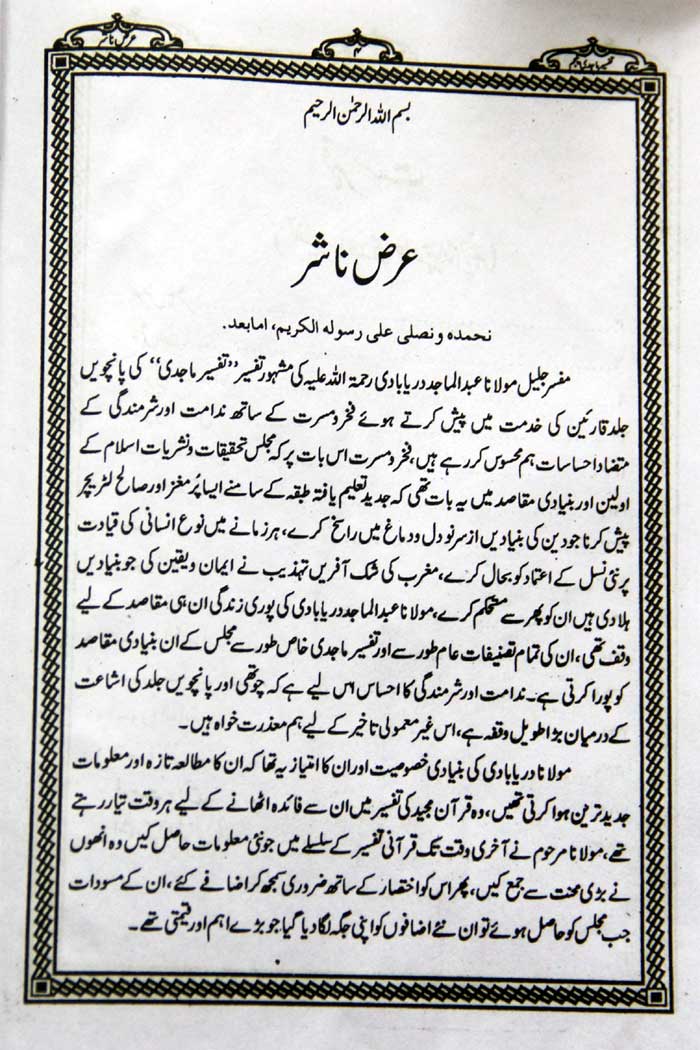 تفسیر ماجدی پنجم
۴
عرض ناشر
بسم اللہ الرحمٰن الرحیم
عرض ناشر
نحمدہ و نصلی علی رسولہ الکریم، امابعد.
مفسر جلیل مولانا عبدالماجد دریابادی رحمۃ اللہ علیہ کی مشہور تفسیر ’’تفسیر ماجدی‘‘ کی پانچویں
جلد قارئین کی خدمت میں پیش کرتے ہوئے فخر و مسرت کے ساتھ ندامت اور شرمندگی کے
متضاد احساسات ہم محسوس کررہے ہیں، فخر و مسرت اس بات پر کہ مجلس تحقیقات و نشریات اسلام کے
اولین اور بنیادی مقاصد میں یہ بات تھی کہ جدید تعلیم یافتہ طبقہ کے سامنے ایسا پُر مغز اور صالح لٹریچر
پیش کرنا جو دین کی بنیادیں از سر نو دل و دماغ میں راسخ کرے، ہر زمانے میں نوع انسانی کی قیادت
پر نئی نسل کے اعتماد کو بحال کرے، مغرب کی شک آفریں تہذیب نے ایمان و یقین کی جو بنیادیں
ہلادی ہیں ان کو پھر سے مستحکم کرے، مولانا عبدالماجد دریابادی کی پوری زندگی ان ہی مقاصد کے لیے
وقف تھی، ان کی تمام تصنیفات عام طور سے اور تفسیر ماجدی خاص طور سے مجلس کے ان بنیادی مقاصد
کو پورا کرتی ہے۔ ندامت اور شرمندگی کا احساس اس لیے ہے کہ چوتھی اور پانچویں جلد کی اشاعت
کے درمیان بڑا طویل وقفہ ہے، اس غیر معمولی تاخیر کے لیے ہم معذرت خواہ ہیں۔
مولانا دریابادی کی بنیادی خصوصیت اور ان کا امتیاز یہ تھا کہ ان کا مطالعہ تازہ اور معلومات
جدید ترین ہوا کرتی تھیں، وہ قرآن مجید کی تفسیر میں ان سے فائدہ اٹھانے کے لیے ہر وقت تیار رہتے
تھے، مولانا مرحوم نے آخری وقت تک قرآنی تفسیر کے سلسلے میں جو نئی معلومات حاصل کیں وہ انھوں
نے بڑی محنت سے جمع کیں، پھر اس کو اختصار کے ساتھ ضروری سمجھ کر اضافے کئے، ان کے مسودات
جب مجلس کو حاصل ہوئے تو ان نئے اضافوں کو اپنی جگہ لگادیا گیا جو بڑے اہم اور قیمتی تھے۔